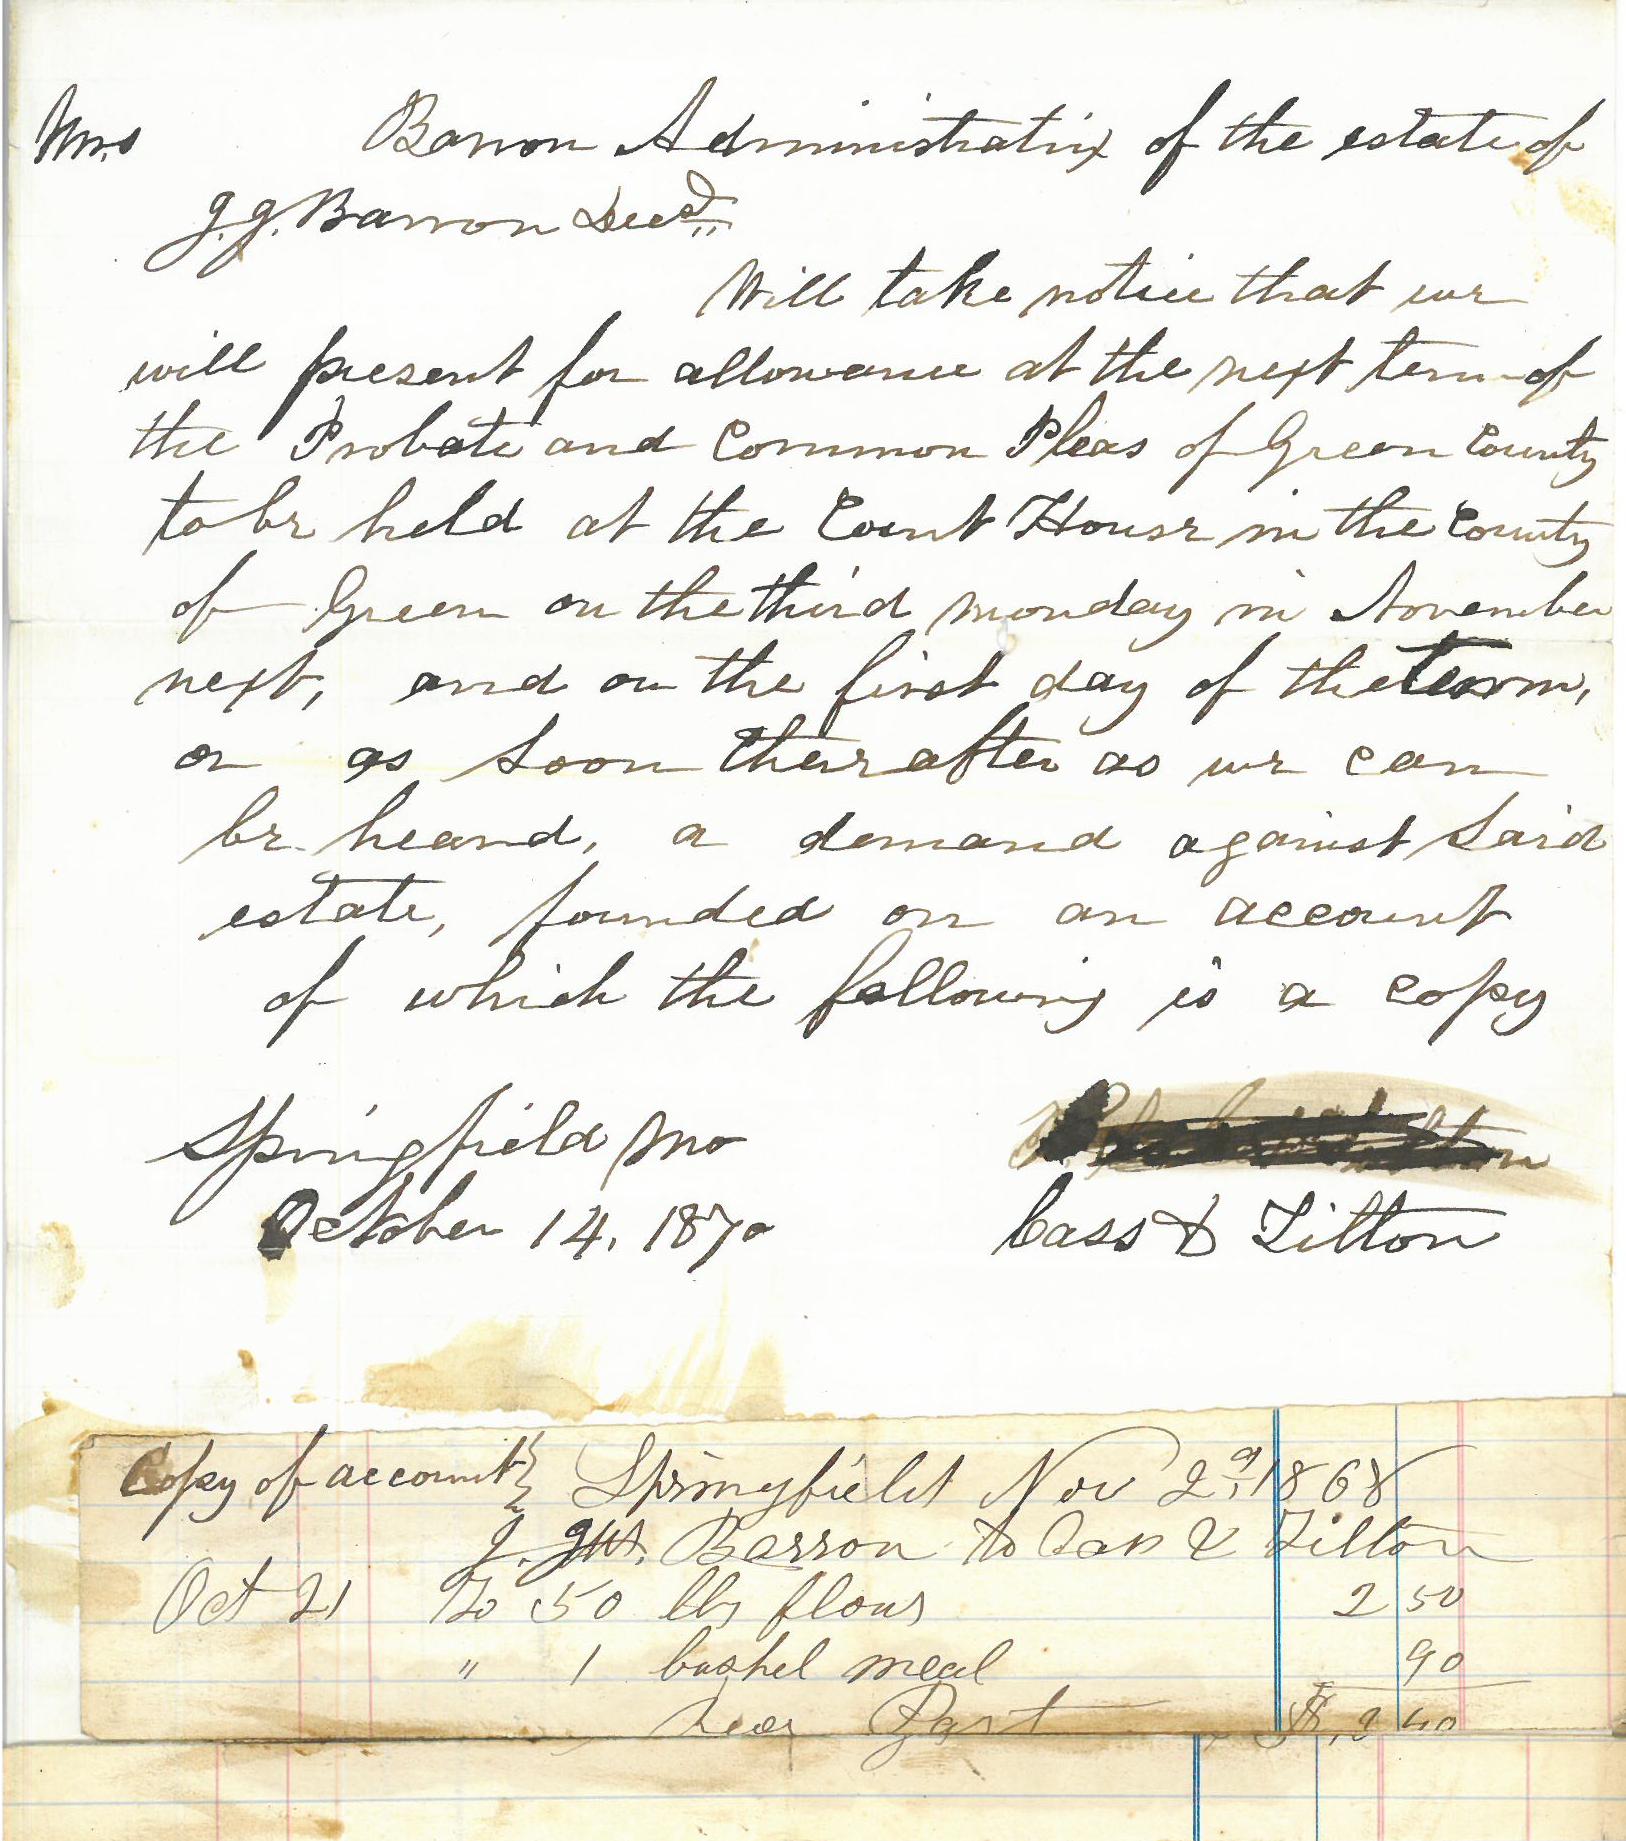 Mrs Barron Administratrix of the estate of
J. J. Barron Decd.
Will take notice that we
will present for allowance at the next term of
the Probate and Common Pleas of Green County
to be held at the Court House in the County
of Green on the third monday in November
next, and on the first day of the term,
or as soon thereafter as we can
be heard, a demand against said
estate, founded on an account
of which the following is a copy
Springfield Mo
October 14, 1870 Cass & Tilton
Copy of account } Springfield Nov 2d, 1868
J. Barron to Cass & Tilton
Oct 21 To 50 lbs flour 2 50
" 1 bushel meal 90
Past $ 40